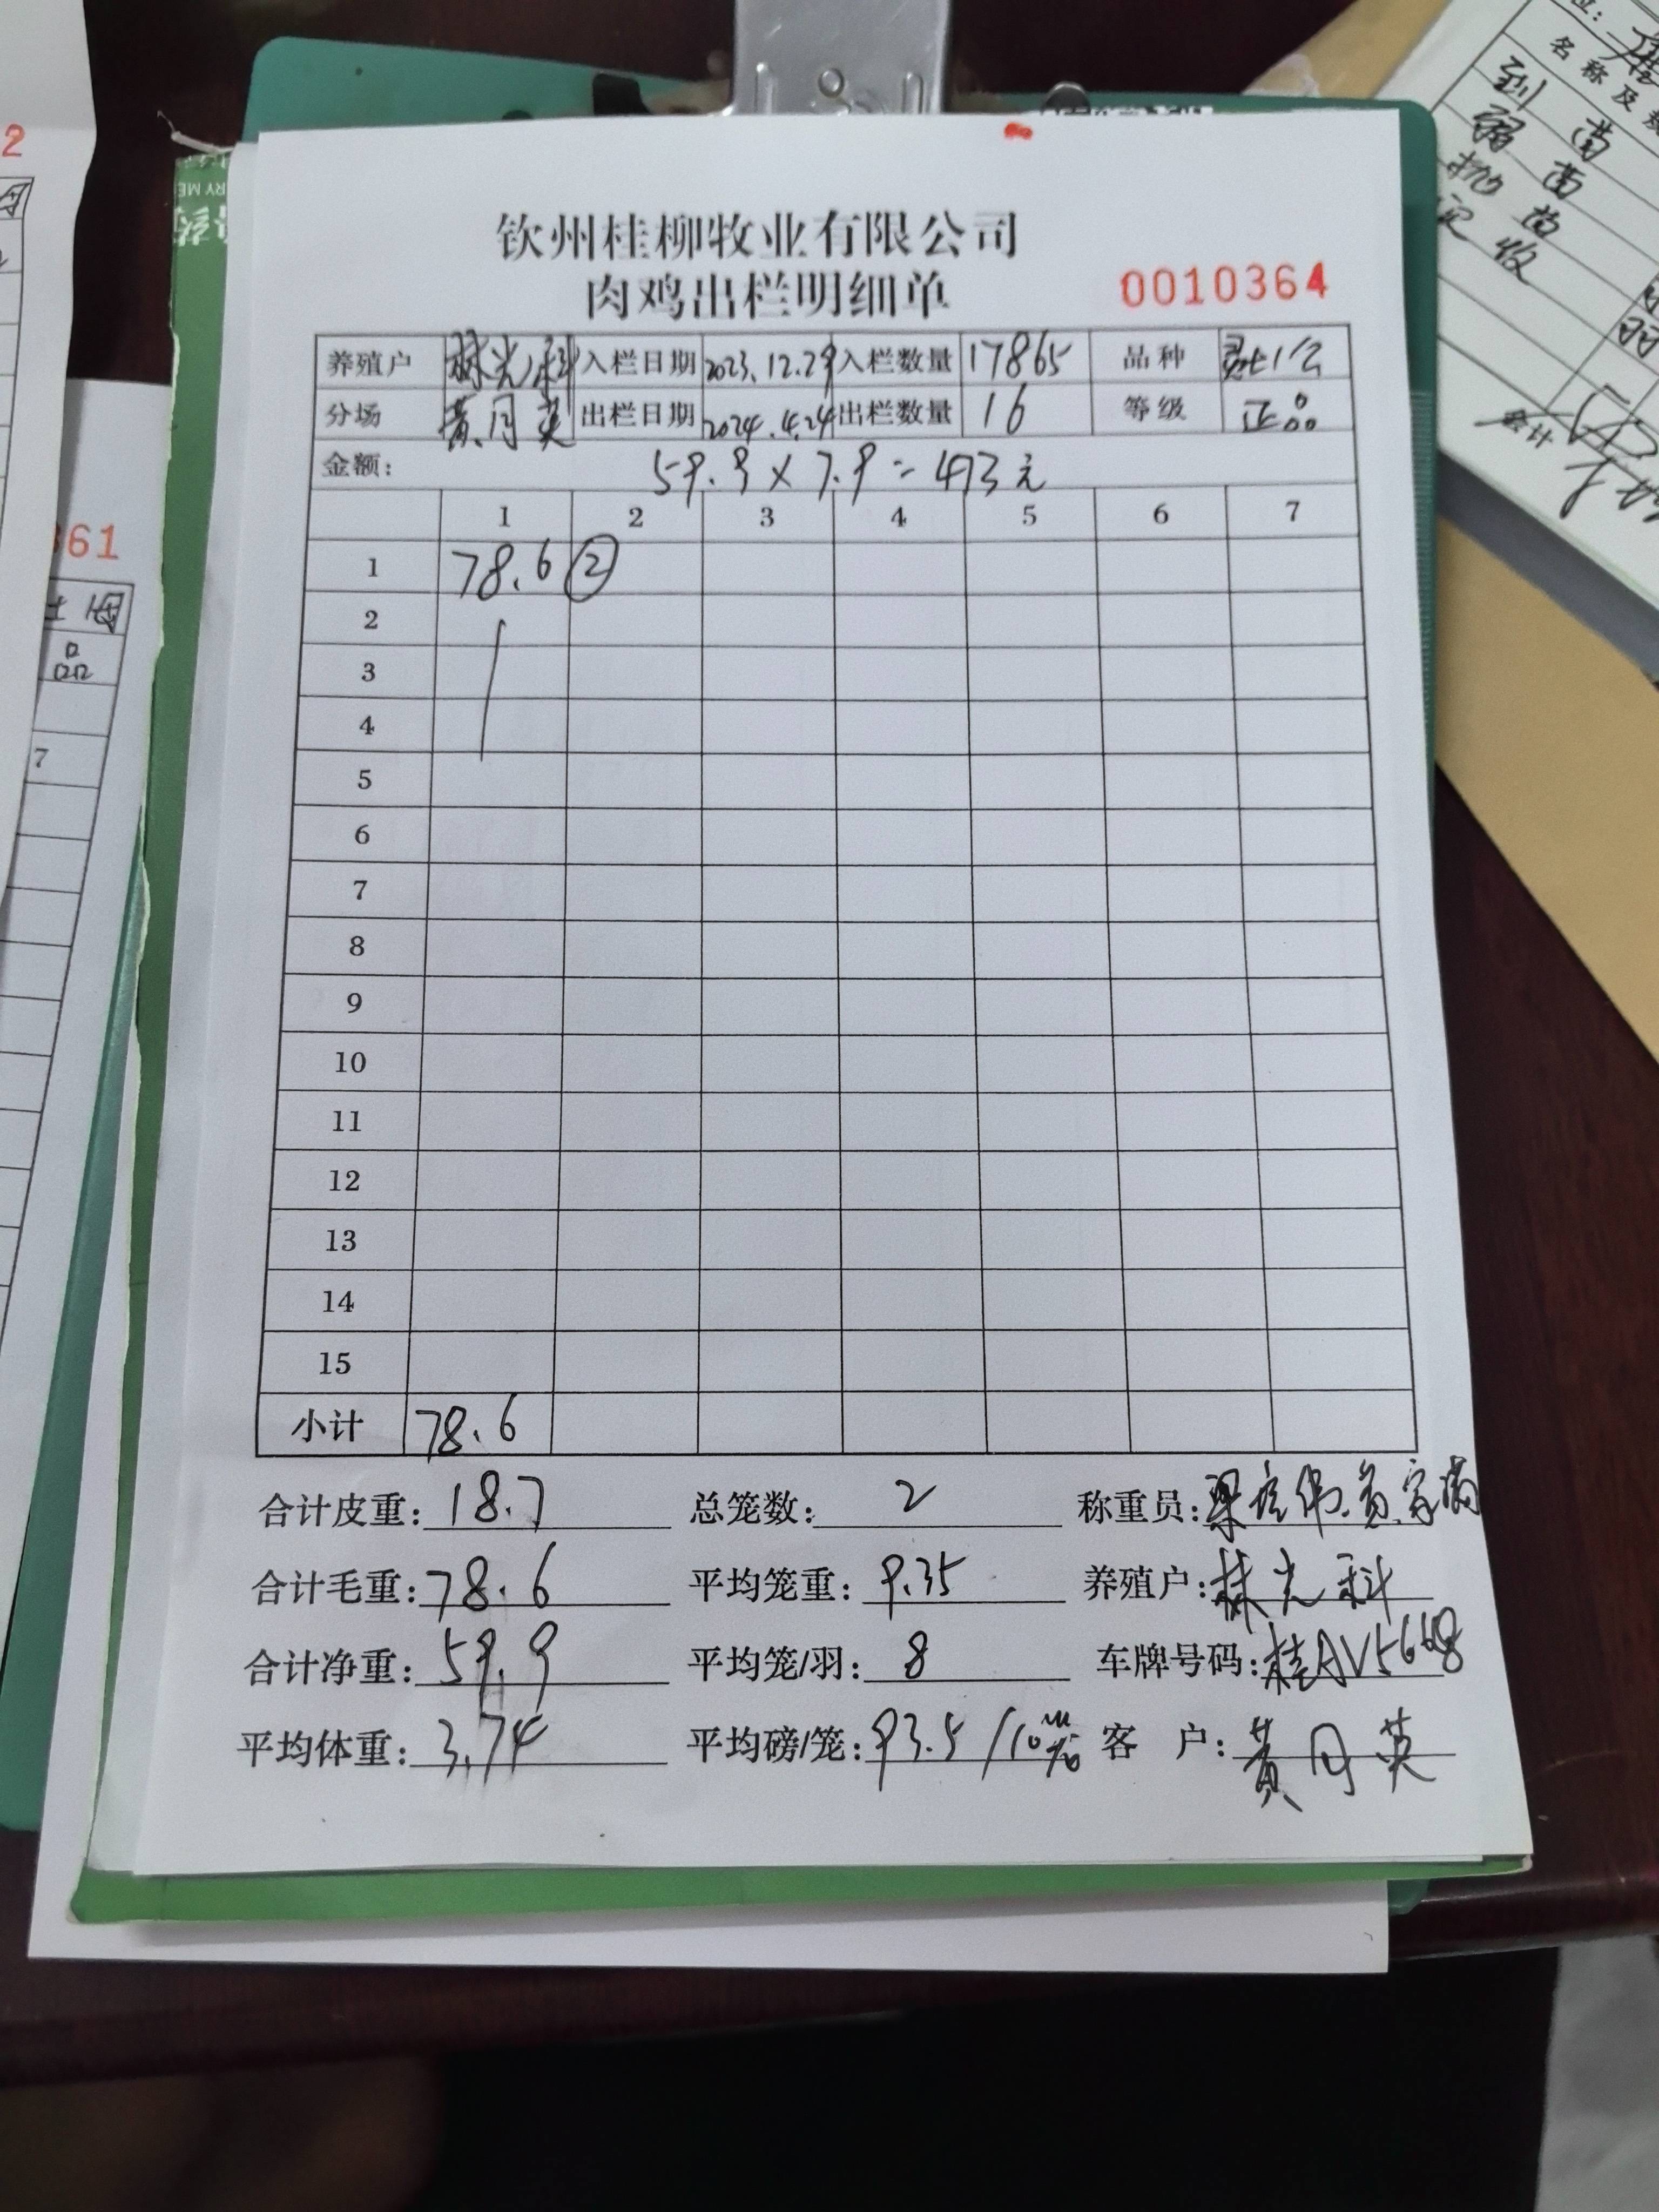 钦州桂柳牧业有限公司
肉鸡出栏明细单
0010364
养殖户 林光科 入栏日期 2023.12.29 入栏数量 17865 品种
分场 黄月英 出栏日期 2024.4.24 出栏数量 16 等级 正品
金额: 59.9×7.9=473元
1 2 3 4 5 6 7
1 78.6 ②
2
3
4
5
6
7
8
9
10
11
12
13
14
15
小计 78.6
合计皮重: 18.7 总笼数: 2 称重员:
合计毛重: 78.6 平均笼重: 9.35 养殖户: 林光科
合计净重: 59.9 平均笼/羽: 8 车牌号码: 桂AV5668
平均体重: 3.74 平均磅/笼: 93.5/10 客 户: 黄月英
2
361
品
7
名称及规
苗
苗
苗
收
会计